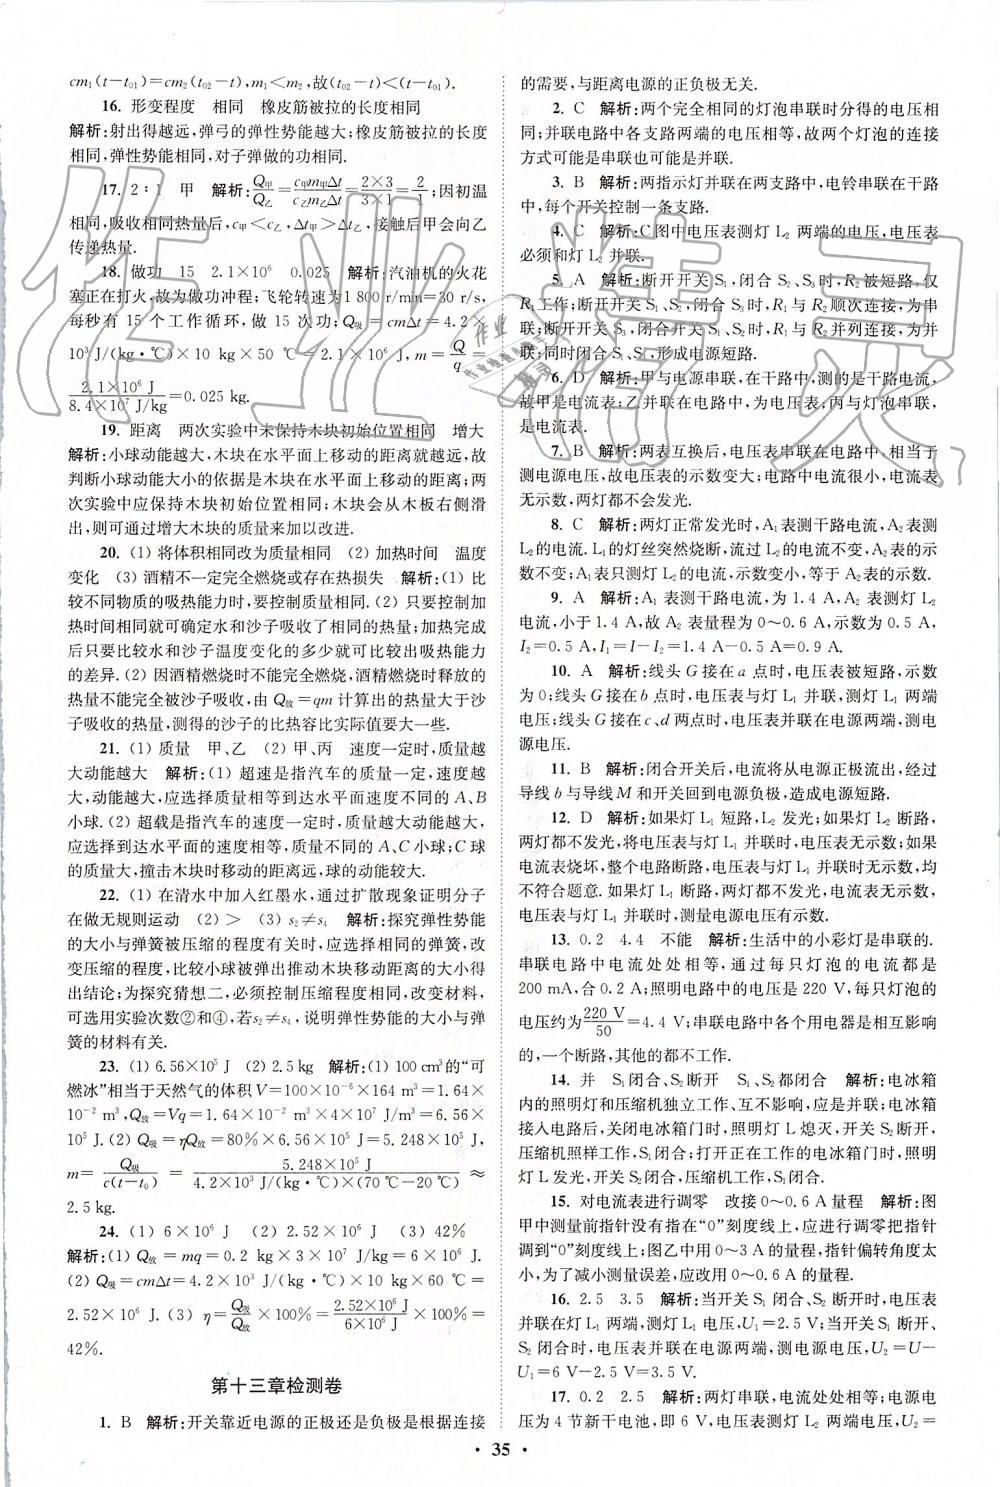 cm₁(t−t₀₁)=cm₂(t₀₂−t),m₁<m₂,故(t₀₂−t)<(t−t₀₁).
16. 形变程度　相同　橡皮筋被拉的长度相同
解析:射出得越远,弹弓的弹性势能越大;橡皮筋被拉的长度
相同,弹性势能相同,对子弹做的功相同.
17. 2∶1　甲　解析:Q甲/Q乙=c甲m甲Δt/c乙m乙Δt=2×3/3×1=2/1;因初温
相同,吸收相同热量后,c甲<c乙,Δt甲>Δt乙,接触后甲会向乙
传递热量.
18. 做功　15　2.1×10⁶　0.025　解析:汽油机的火花
塞正在打火,故为做功冲程;飞轮转速为1 800 r/min=30 r/s,
每秒有 15 个工作循环,做 15 次功;Q吸=cmΔt=4.2×
10³ J/(kg·℃)×10 kg×50 ℃=2.1×10⁶ J,m=Q/q=
2.1×10⁶ J/8.4×10⁷ J/kg=0.025 kg.
19. 距离　两次实验中未保持木块初始位置相同　增大
解析:小球动能越大,木块在水平面上移动的距离就越远,故
判断小球动能大小的依据是木块在水平面上移动的距离;两
次实验中应保持木块初始位置相同;木块会从木板右侧滑
出,则可通过增大木块的质量来加以改进.
20. (1) 将体积相同改为质量相同　(2) 加热时间　温度
变化　(3) 酒精不一定完全燃烧或存在热损失　解析:(1) 比
较不同物质的吸热能力时,要控制质量相同.(2) 只要控制加
热时间相同就可确定水和沙子吸收了相同的热量;加热完成
后只要比较水和沙子温度变化的多少就可比较吸热能力
的差异.(3) 因酒精燃烧时不能完全燃烧,酒精燃烧时释放的
热量不能完全被沙子吸收,由 Q放=qm 计算出的热量大于沙
子吸收的热量,测得的沙子的比热容比实际值要大一些.
21. (1) 质量　甲、乙　(2) 甲、丙　速度一定时,质量越
大动能越大　解析:(1) 超速是指汽车的质量一定,速度越大
动能越大,应选择质量相等到达水平面速度不同的 A、B
小球.(2) 超载是指汽车的速度一定时,质量越大动能越大,
应选择到达水平面的速度相等,质量不同的 A、C 小球;C 球
的质量大,撞击木块时移动的距离远,球的动能较大.
22. (1) 在清水中加入红墨水,通过扩散现象证明分子
在做无规则运动　(2) >　(3) s₂≠s₄　解析:探究弹性势能
的大小与弹簧被压缩的程度有关时,应选择相同的弹簧,改
变压缩的程度,比较小球被弹出推动木块移动距离的大小得
出结论;为探究猜想二,必须控制压缩程度相同,改变材料,
可选用实验次数②和④,若s₂≠s₄,说明弹性势能的大小与弹
簧的材料有关.
23. (1) 6.56×10⁵ J　(2) 2.5 kg　解析:(1) 100 cm³的“可
燃冰”相当于天然气的体积 V=100×10⁻⁶×164 m³=1.64×
10⁻² m³,Q放=Vq=1.64×10⁻² m³×4×10⁷ J/m³=6.56×
10⁵ J.(2) Q吸=ηQ放=80%×6.56×10⁵ J=5.248×10⁵ J,
m=Q吸/c(t−t₀)=5.248×10⁵ J/4.2×10³ J/(kg·℃)×(70 ℃−20 ℃)≈
2.5 kg.
24. (1) 6×10⁶ J　(2) 2.52×10⁶ J　(3) 42%
解析:(1) Q放=mq=0.2 kg×3×10⁷ J/kg=6×10⁶ J.
(2) Q吸=cmΔt=4.2×10³ J/(kg·℃)×10 kg×60 ℃=
2.52×10⁶ J.(3) η=Q吸/Q放×100%=2.52×10⁶ J/6×10⁶ J×100%=
42%.
第十三章检测卷
1. B　解析:开关靠近电源的正极还是负极是根据连接
的需要,与距离电源的正负极无关.
2. C　解析:两个完全相同的灯泡串联时分得的电压相
同;并联电路中各支路两端的电压相等,故两个灯泡的连接
方式可能是串联也可能是并联.
3. B　解析:两指示灯并联在两支路中,电铃串联在干路
中,每个开关控制一条支路.
4. C　解析:C图中电压表测灯 L₂ 两端的电压,电压表
必须和灯 L₂ 并联.
5. A　解析:断开开关 S₁,闭合 S₂、S₃时,R₂被短路,仅
R₁工作;断开开关 S₁、S₂,闭合 S₃时,R₁与 R₂顺次连接,为串
联;断开开关 S₃,闭合开关 S₁、S₂时,R₁与 R₂并列连接,为并
联;同时闭合 S₁、S₃,形成电源短路.
6. D　解析:甲与电源串联,在干路中,测的是干路电流,
故甲是电流表;乙并联在电路中,为电压表,丙与灯泡串联,
是电流表.
7. B　解析:两表互换后,电压表串联在电路中,相当于
测电源电压,故电压表的示数变大;电路中电流很小,电流表
无示数,两灯都不会发光.
8. C　解析:两灯正常发光时,A₁表测干路电流,A₂表测
L₂的电流.L₁的灯丝突然烧断,流过 L₂的电流不变,A₂表的示
数不变;A₁表只测灯 L₂的电流,示数变小,等于 A₂表的示数.
9. A　解析:A₁ 表测干路电流,为 1.4 A,A₂表测灯 L₂
电流,小于1.4 A,故 A₂表量程为 0～0.6 A,示数为 0.5 A,
I₂=0.5 A,I₁=I−I₂=1.4 A−0.5 A=0.9 A.
10. A　解析:线头 G 接在 a 点时,电压表被短路,示数
为 0;线头 G 接在 b 点时,电压表与灯 L₁ 并联,测灯 L₁ 两端
电压;线头 G 接在 c、d 两点时,电压表并联在电源两端,测电
源电压.
11. B　解析:闭合开关后,电流将从电源正极流出,经过
导线 b 与导线 M 和开关回到电源负极,造成电源短路.
12. D　解析:如果灯 L₁ 短路,L₂ 发光;如果灯 L₂ 断路,
两灯都不发光,将电压表与灯 L₁ 并联时,电压表无示数;如果
电流表烧坏,整个电路断路,电压表与灯 L₁ 并联时无示数,均
不符合题意.如果灯 L₁ 断路,两灯都不发光,电流表无示数,
电压表与灯 L₁ 并联时,测量电源电压有示数.
13. 0.2　4.4　不能　解析:生活中的小彩灯是串联的.
串联电路中电流处处相等,通过每只灯泡的电流都是
200 mA,合 0.2 A;照明电路中的电压是 220 V,每只灯泡的
电压约为220 V/50=4.4 V;串联电路中各个用电器是相互影响
的,一个断路,其他的都不工作.
14. 并　S₁闭合、S₂断开　S₁、S₂都闭合　解析:电冰箱
内的照明灯和压缩机独立工作、互不影响,应是并联;电冰箱
接入电路后,关闭电冰箱门时,照明灯 L 熄灭,开关 S₂断开,
压缩机照样工作,S₁闭合;打开正在工作的电冰箱门时,照明
灯发光,开关 S₂闭合,压缩机工作,S₁闭合.
15. 对电流表进行调零　改接 0～0.6 A 量程　解析:图
甲中测量前指针没有指在“0”刻度线上,应进行调零把指针
调到“0”刻度线上;图乙中用 0～3 A 的量程,指针偏转角度太
小,为了减小测量误差,应改用 0～0.6 A 的量程.
16. 2.5　3.5　解析:当开关 S₁ 闭合、S₂断开时,电压表
并联在灯 L₁ 两端,测灯 L₁ 两端电压,U₁=2.5 V;当开关 S₁
断开、S₂闭合时,电压表并联在电源两端,测电源电压,U₂=U−
U₁=6 V−2.5 V=3.5 V.
17. 0.2　2.5　解析:两灯串联,电流处处相等;电源电
压为 4 节新干电池,即 6 V,电压表测灯 L₂ 两端电压,U₂=
• 35 •